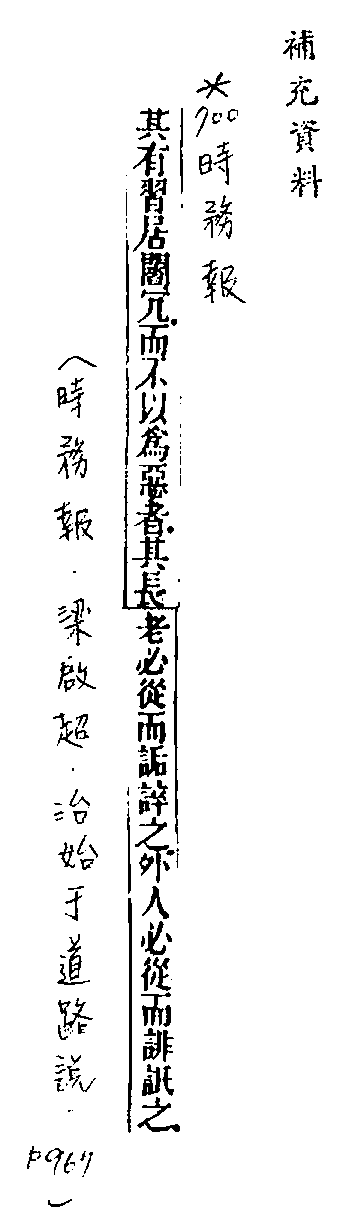 補充資料
*700時務報
其有習居闒宂.而不以爲惡者.其長老必從而詬誶之.外人必從而誹詆之.
(時務報.梁啟超.治始于道路說.
P967)